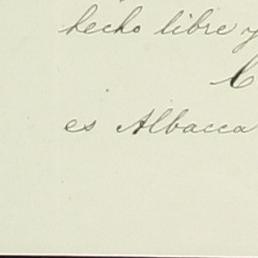 hecho libre y
es Albacea